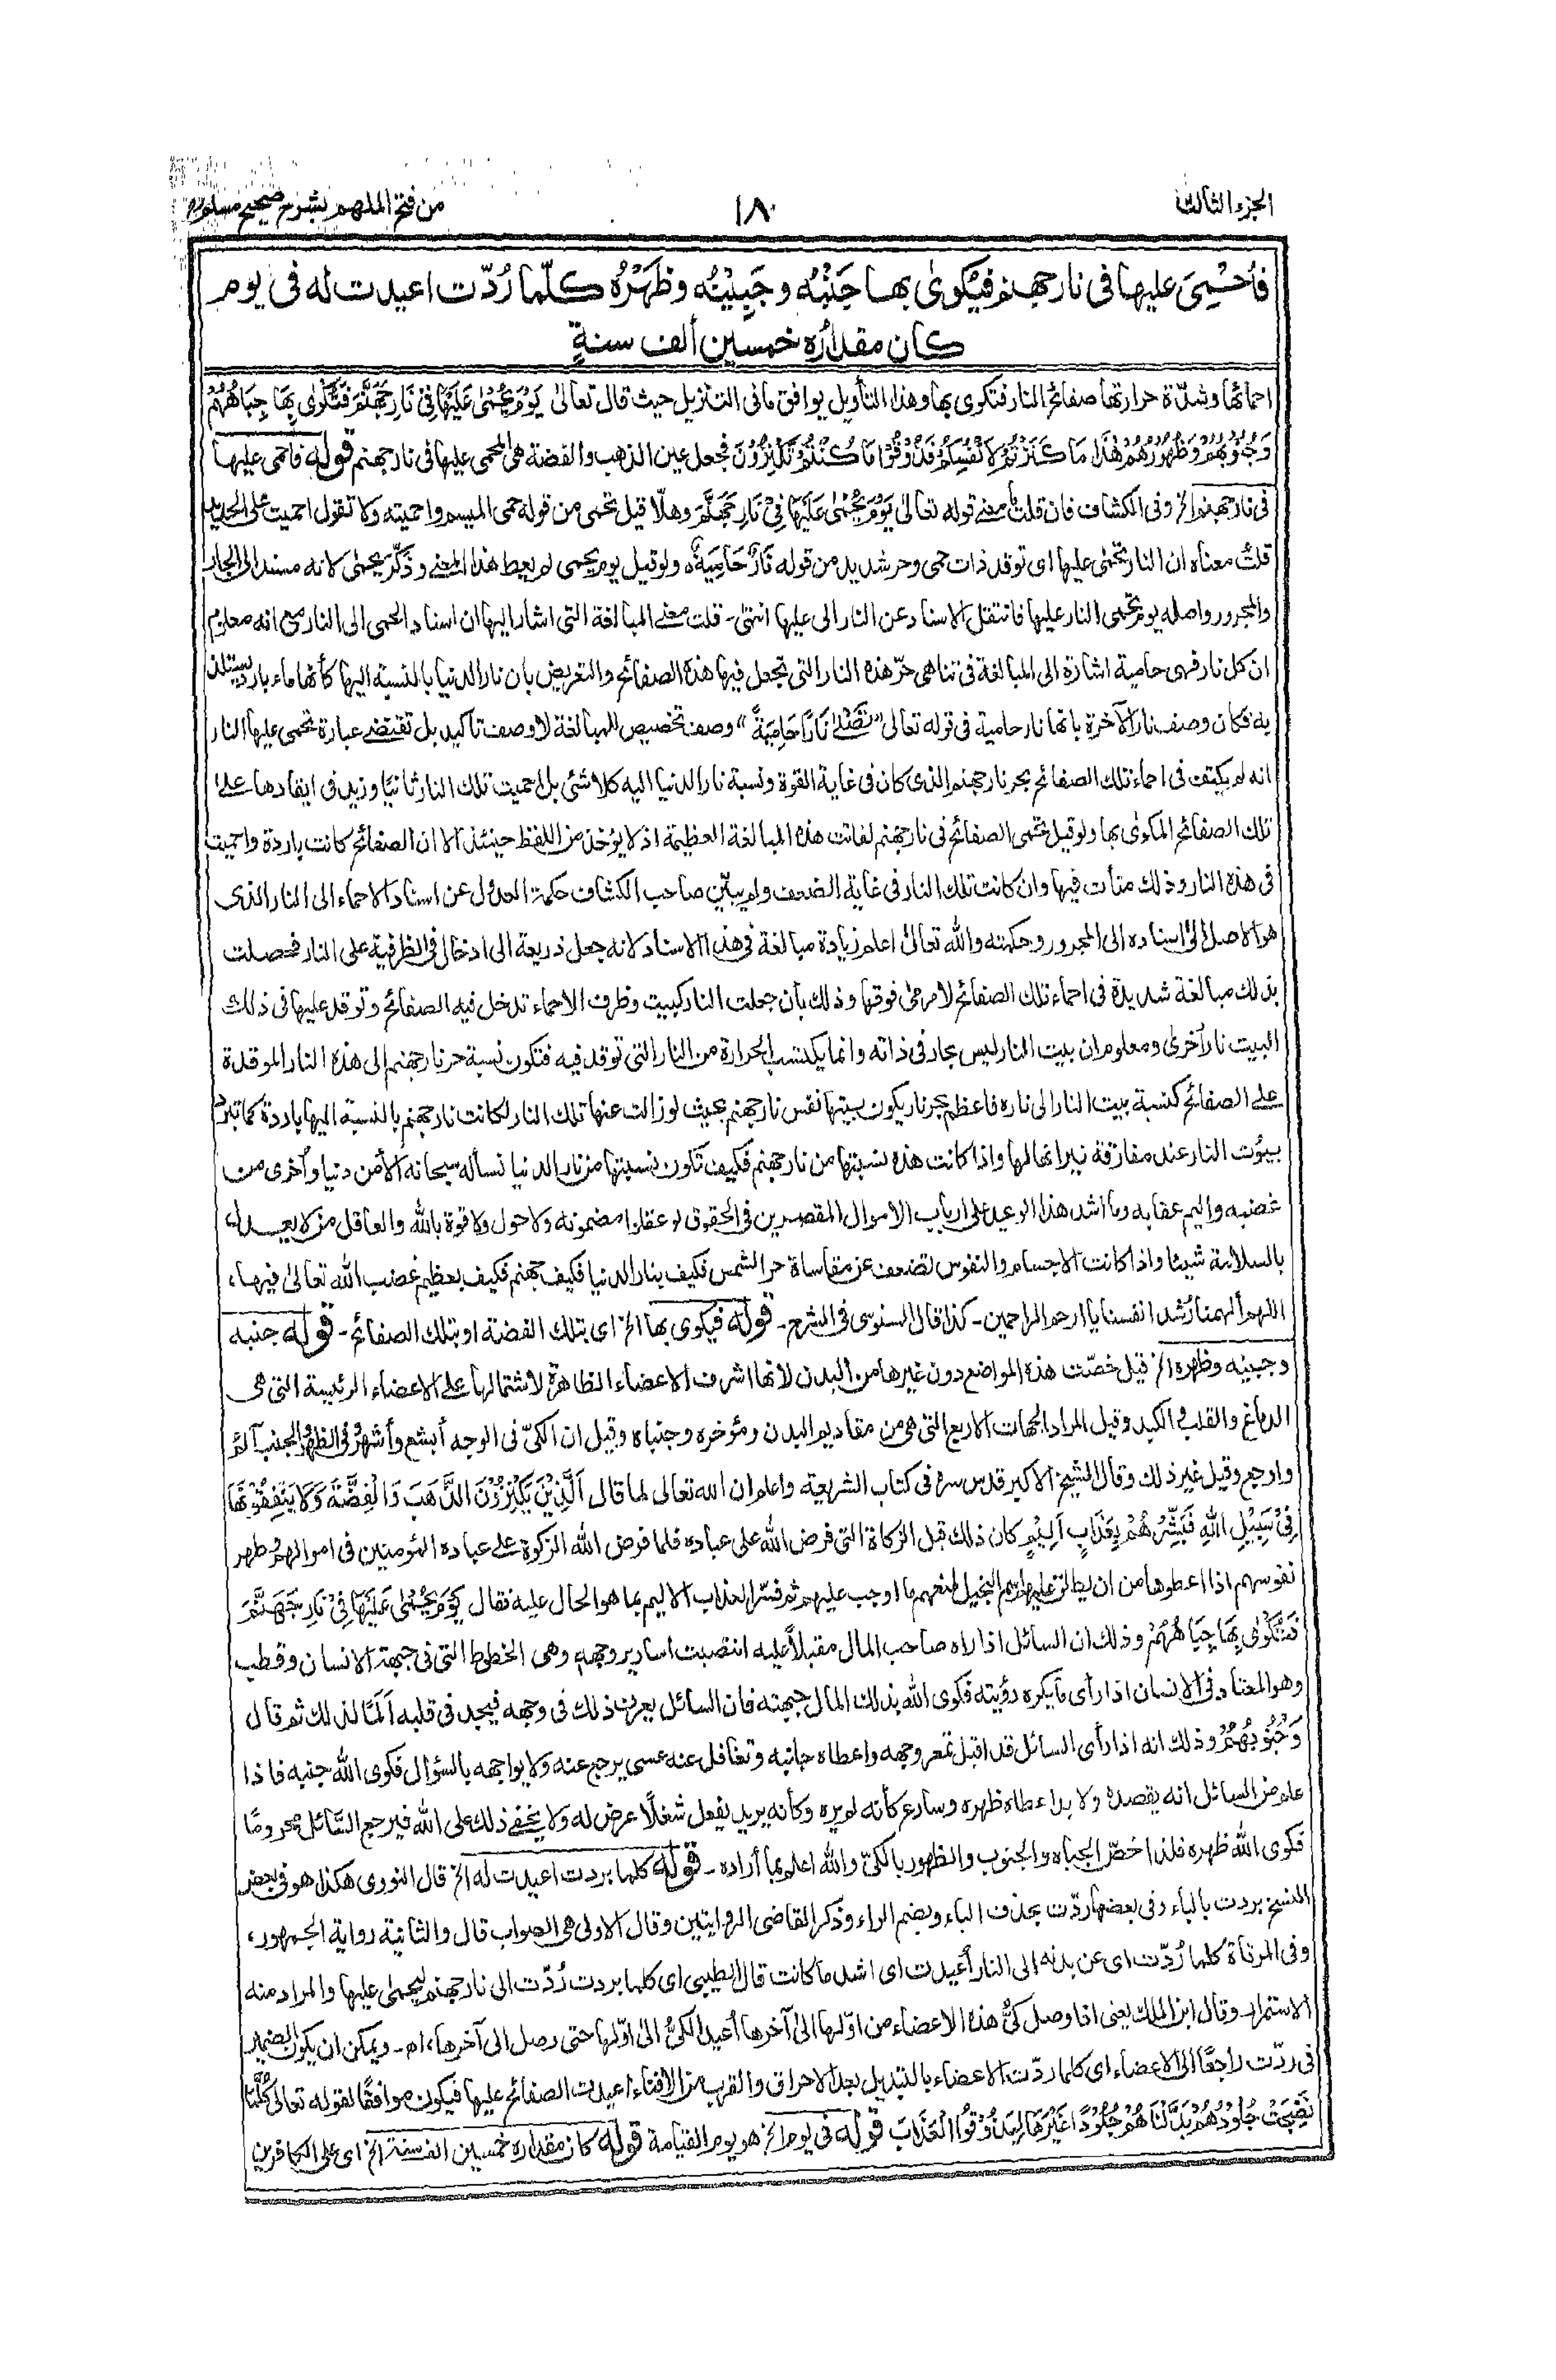 الجزء الثالث
١٨
من فتح الملهم بشرح صحيح مسلم
فأُحْمِيَ عليها فى نار جهنم فيُكوىٰ بها جَنْبُه وجَبِيْنُه وظَهْرُه كلّما رُدّت اعيدت له فى يوم
كان مقدارُه خمسين ألف سنةٍ
احمائها وشدّة حرارتها صفائح النار فتكوى بها وهذا التأويل يوافق ما فى التنزيل حيث قال تعالىٰ يَوْمَ يُحْمٰى عَلَيْهَا فِىْ نَارِ جَهَنَّمَ فَتُكْوٰى بِهَا جِبَاهُهُمْ
وَجُنُوْبُهُمْ وَظُهُوْرُهُمْ هٰذَا مَا كَنَزْتُمْ لِاَنْفُسِكُمْ فَذُوْقُوْا مَا كُنْتُمْ تَكْنِزُوْنَ فجعل عين الذهب والفضة هى المحمى عليها فى نار جهنم قوله فاحمى عليها
فى نار جهنم الخ وفى الكشاف فان قلت ما معنے قوله تعالىٰ يَوْمَ يُحْمٰى عَلَيْهَا فِىْ نَارِ جَهَنَّمَ وهلّا قيل تحمى من قوله حمى الميسم واحميته ولا تقول احميت على الحديد
قلتُ معناه ان النار تحمٰى عليها اى توقد ذات حمى وحر شديد من قوله نَارٌ حَامِيَةٌ، ولو قيل يوم يحمى لم يعط هذا المعنے وذكّر يحمٰى لانه مسند الى الجار
والمجرور واصله يوم تحمى النار عليها فانتقل الاسناد عن النار الى عليها انتهٰى - قلت معنے المبالغة التى اشار اليها ان اسناد الحمى الى النار مع انه معلوم
ان كل نار فهى حامية اشارة الى المبالغة فى تناهى حرّ هذه النار التى تجعل فيها هذه الصفائح والتعريض بان نار الدنيا بالنسبة اليها كأنها ماء بارد يستلذ
به فكان وصف نار الآخرة بانها نار حامية فى قوله تعالى "تَصْلٰى نَارًا حَامِيَةً" وصف تخصيص للمبالغة لا وصف تاكيد بل تقتضے عبارة تحمى عليها النار
انه لم يكتف فى احماء تلك الصفائح بحر نار جهنم الذى كان فى غاية القوة ونسبة نار الدنيا اليه كلا شئ بل احميت تلك النار ثانيًا وزيد فى ايقادها علے
تلك الصفائح المكوىٰ بها ولو قيل تحمى الصفائح فى نار جهنم لفاتت هذه المبالغة العظيمة اذ لا يؤخذ من اللفظ حينئذ الا ان الصفائح كانت باردة واحميت
فى هذه النار وذلك متأت فيها وان كانت تلك النار فى غاية الضعف ولم يبيّن صاحب الكشاف حكمة العدول عن اسناد الاحماء الى النار الذى
هو الاصل الى اسناده الى المجرور وحكمته والله تعالىٰ اعلم زيادة مبالغة فى هذا الاسناد لانه جعل ذريعة الى ادخال فى الظرفية على النار فحصلت
بذلك مبالغة شديدة فى احماء تلك الصفائح لا مرمى فوقها وذلك بأن جعلت النار كبيت وظرف الاحماء تدخل فيه الصفائح وتوقد عليها فى ذلك
البيت نار أخرىٰ ومعلوم ان بيت النار ليس بحار فى ذاته وانما يكتسب الحرارة من النار التى توقد فيه فتكون نسبة حر نار جهنم الى هذه النار الموقدة
علے الصفائح كنسبة بيت النار الى ناره فاعظم بحر نار يكون بيتها نفس نار جهنم بحيث لو زالت عنها تلك النار لكانت نار جهنم بالنسبة اليها باردة كما تبرد
بيوت النار عند مفارقة نيرانها لها واذا كانت هذه نسبتها من نار جهنم فكيف تكون نسبتها من نار الدنيا نسأله سبحانه الأمن دنيا وأخرى من
غضبه واليم عقابه وما اشد هذا الوعيد على ارباب الاموال المقصرين فى الحقوق لو عقلوا مضمونه ولا حول ولا قوة بالله والعاقل من لا يعدل،
بالسلامة شيئا واذا كانت الاجسام والنفوس تضعف عن مقاساة حر الشمس فكيف بنار الدنيا فكيف جهنم فكيف بعظيم غضب الله تعالىٰ فيها،
اللهم ألهمنا رُشد انفسنا يا ارحم الراحمين - كذا قال السنوسى فى الشرح - قوله فيكوى بها الخ اى بتلك الفضة او بتلك الصفائح - قوله جنبه
وجبينه وظهره الخ قيل خصّت هذه المواضع دون غيرها من البدن لانها اشرف الاعضاء الظاهرة لاشتمالها على الاعضاء الرئيسة التى هى
الدماغ والقلب والكبد وقيل المراد الجهات الاربع التى هى من مقاديم البدن ومؤخره وجنباه وقيل ان الكىّ فى الوجه أبشع وأشهر وفى الظهر والجنب آلم
واوجع وقيل غير ذلك وقال الشيخ الاكبر قدس سره فى كتاب الشريعة واعلم ان الله تعالى لما قال اَلَّذِيْنَ يَكْنِزُوْنَ الذَّهَبَ وَالْفِضَّةَ وَلَا يُنْفِقُوْنَهَا
فِىْ سَبِيْلِ اللهِ فَبَشِّرْهُمْ بِعَذَابٍ اَلِيْمٍ كان ذلك قبل الزكاة التى فرض الله على عباده فلما فرض الله الزكوة علے عباده المؤمنين فى اموالهم وطهر
نفوسهم اذا اعطوها من ان يطالق عليهم اسم البخيل لمنعهم ما اوجب عليهم ثم فسّر العذاب الاليم بما هو الحال عليه فقال يَوْمَ يُحْمٰى عَلَيْهَا فِىْ نَارِ جَهَنَّمَ
فَتُكْوٰى بِهَا جِبَاهُهُمْ وذلك ان السائل اذا راه صاحب المال مقبلاً عليه انقبضت اسارير وجهه وهى الخطوط التى فى جبهة الانسان وقطب
وهو المعتاد فى الانسان اذا رأى ما يكره رؤيته فكوى الله بذلك المال جبهته فان السائل يعرف ذلك فى وجهه فيجد فى قلبه اَلَمًا لذلك ثم قال
وَجُنُوْبُهُمْ وذلك انه اذا رأى السائل قد اقبل تمعر وجهه واعطاه جانبه وتغافل عنه عسى يرجع عنه ولا يواجهه بالسؤال فكوى الله جنبه فاذا
علم من السائل انه يقصده ولا بد اعطاه ظهره وسارع كأنه لم يره وكأنه يريد يفعل شغلًا عرض له ولا يخفے ذلك على الله فيرجع السّائل محرومًا
فكوى الله ظهره فلذا خصّ الجباه والجنوب والظهور بالكىّ والله اعلم بما أراده - قوله كلما بردت اعيدت له الخ قال النووى هكذا هو فى بعض
النسخ بردت بالباء وفى بعضها ردّت بحذف الباء وبضم الراء وذكر القاضى الروايتين وقال الاولى هى الصواب قال والثانية رواية الجمهور،
وفى المرقاة كلما رُدّت اى عن بدنه الى النار أعيدت اى اشد ما كانت قال الطيبى اى كلما بردت رُدّت الى نار جهنم ليحمىٰ عليها والمراد منه
الاستمرار - وقال ابن الملك يعنى اذا وصل كىُّ هذه الاعضاء من اوّلها الىٰ آخرها أعيد الكىُّ الىٰ اوّلها حتى وصل الى آخرها، اهـ - ويمكن ان يكون الضمير
فى ردّت راجعًا الى الاعضاء اى كلما ردّت الاعضاء بالتبديل بعد الاحراق والقرب من الافناء اعيدت الصفائح عليها فيكون موافقًا لقوله تعالىٰ كُلَّمَا
نَضِجَتْ جُلُوْدُهُمْ بَدَّلْنَاهُمْ جُلُوْدًا غَيْرَهَا لِيَذُوْقُوا الْعَذَابَ قوله فى يوم الخ هو يوم القيامة قوله كان مقداره خمسين الف سنة الخ اى على الكافرين